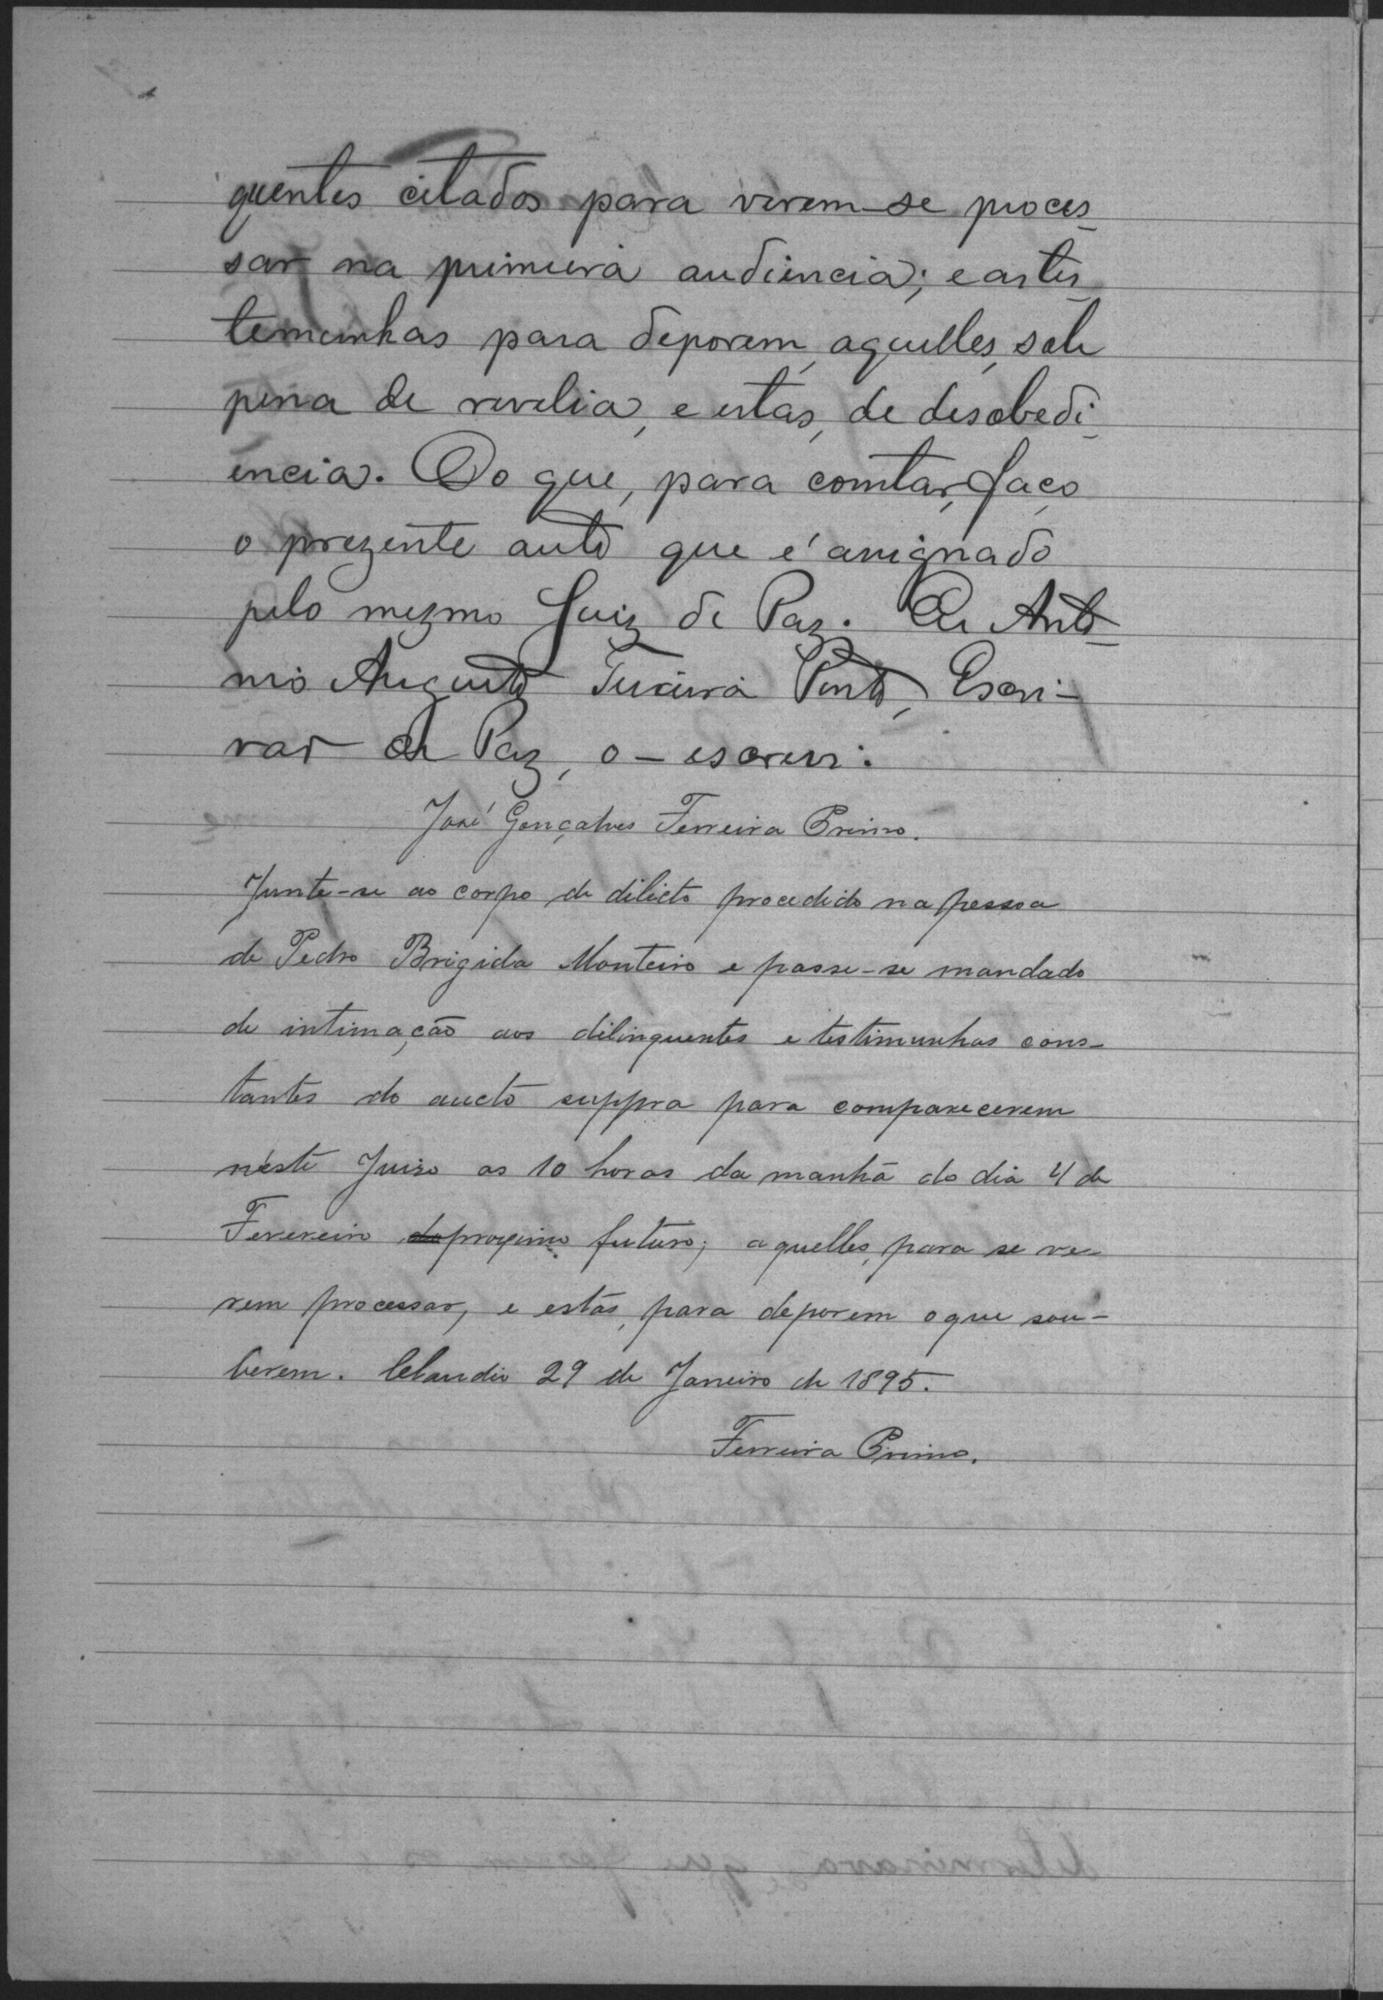 quentes citados para verem-se proces-
sar na primeira audiencia; e as tes-
temunhas para deporem, aquelles, sob
pena de revelia, e estas, de desobedi-
encia. Do que, para constar, faço
o prezente auto que é assignado
pelo mezmo Juiz de Paz. Eu Anto-
nio Augusto Teixeira Pinto, Escri-
vão de Paz, o-escrevi.
José Gonçalves Ferreira Primo.
Junte-se ao corpo de dilicto procedido na pessoa
de Pedro Brigida Monteiro e passe-se mandado
de intimação aos dilinquentes e testimunhas cons-
tantes do aucto suppra para comparecerem
néste Juizo as 10 horas da manhã do dia 4 de
Fevereiro do proximo futuro; aquelles, para se ve-
rem processar, e estas, para deporem o que sou-
berem. 29 de Janeiro de 1895.
Ferreira Primo.